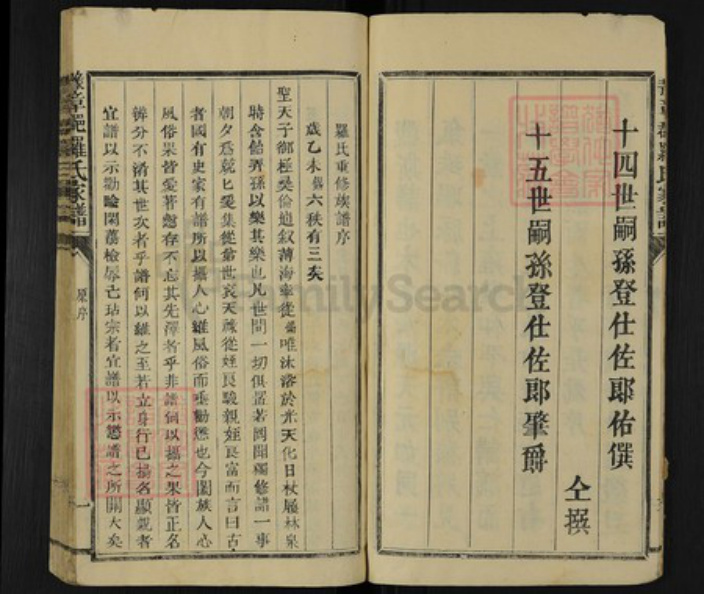 十四世嗣孫登仕佐郎佑僎
十五世嗣孫登仕佐郎肇爵
仝撰
羅氏重修族譜序
歲乙未舊六秩有三矣
聖天子御極奠倫道叙薄海寧從 唯沐浴於光天化日杖履林泉
時含飴弄孫以樂其樂也凡世間一切俱置若罔聞獨修譜一事
朝夕為兢匕爰集從 世哀天 從姪良駿親姪良富而言曰古
者國有史家有譜所以攝人心維風俗而垂勸懲也今閤族人心
風俗果皆愛著慤存不忘其先澤者乎非譜何以攝之果皆正名
辨分不淆其世次者乎譜何以維之至若立身行己揚名顯親者
宜譜以示勸踰閑蕩檢辱亡玷宗者宜譜以示懲譜之所關大矣
羅氏家譜
原序
一
FamilySearch